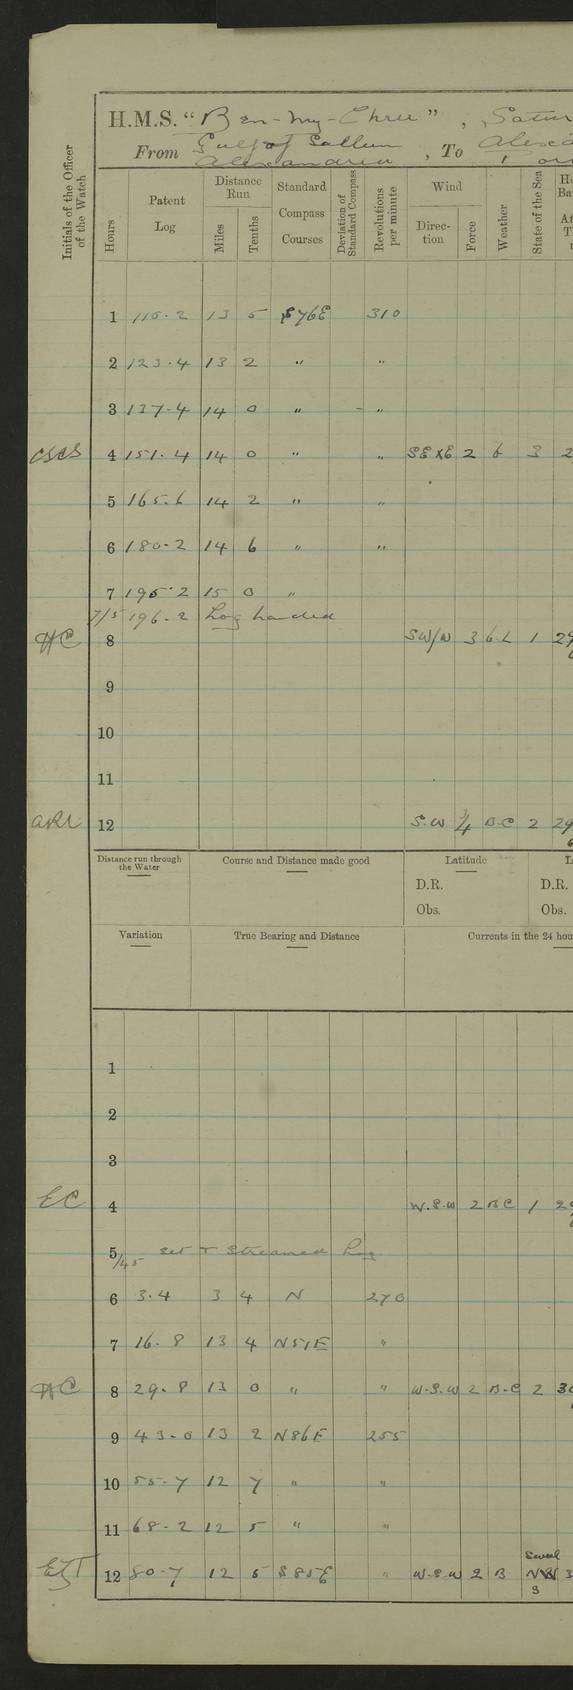 H.M.S. “Ben-my-Chree”, Satur
From Gulf of Sollum
Alexandria, To Alexa
Initials of the Officer of the Watch
Hours
Patent Log
Distance Run
Miles
Tenths
Standard Compass Courses
Deviation of Standard Compass
Revolutions per minute
Wind
Direction
Force
Weather
State of the Sea
1 110.2 13 5 S76E 310
2 123.4 13 2 " "
3 137.4 14 0 " - "
CSCS 4 151.4 14 0 " " SE×E 2 b 3 2
5 165.6 14 2 " "
6 180.2 14 6 " "
7 195.2 15 0 "
7/5 196.2 Log handed
HC 8 SW/W 3 b.c 1 29
9
10
11
12 S.W 3/4 B.C 2 29
Distance run through the Water
Course and Distance made good
Latitude
D.R. D.R.
Obs. Obs.
Variation
True Bearing and Distance
Currents in the 24 hou
1
2
3
EC 4 W.S.W 2 BC 1 29
5
/45 Set & Streamed Log
6 3.4 3 4 N 270
7 16.8 13 4 N51E "
HC 8 29.8 13 0 " " W.S.W 2 B.C 2 30
9 43.0 13 2 N86E 255
10 55.7 12 7 " "
11 68.2 12 5 " "
12 80.7 12 5 S85E " W.S.W 2 B Swell NW 3
3